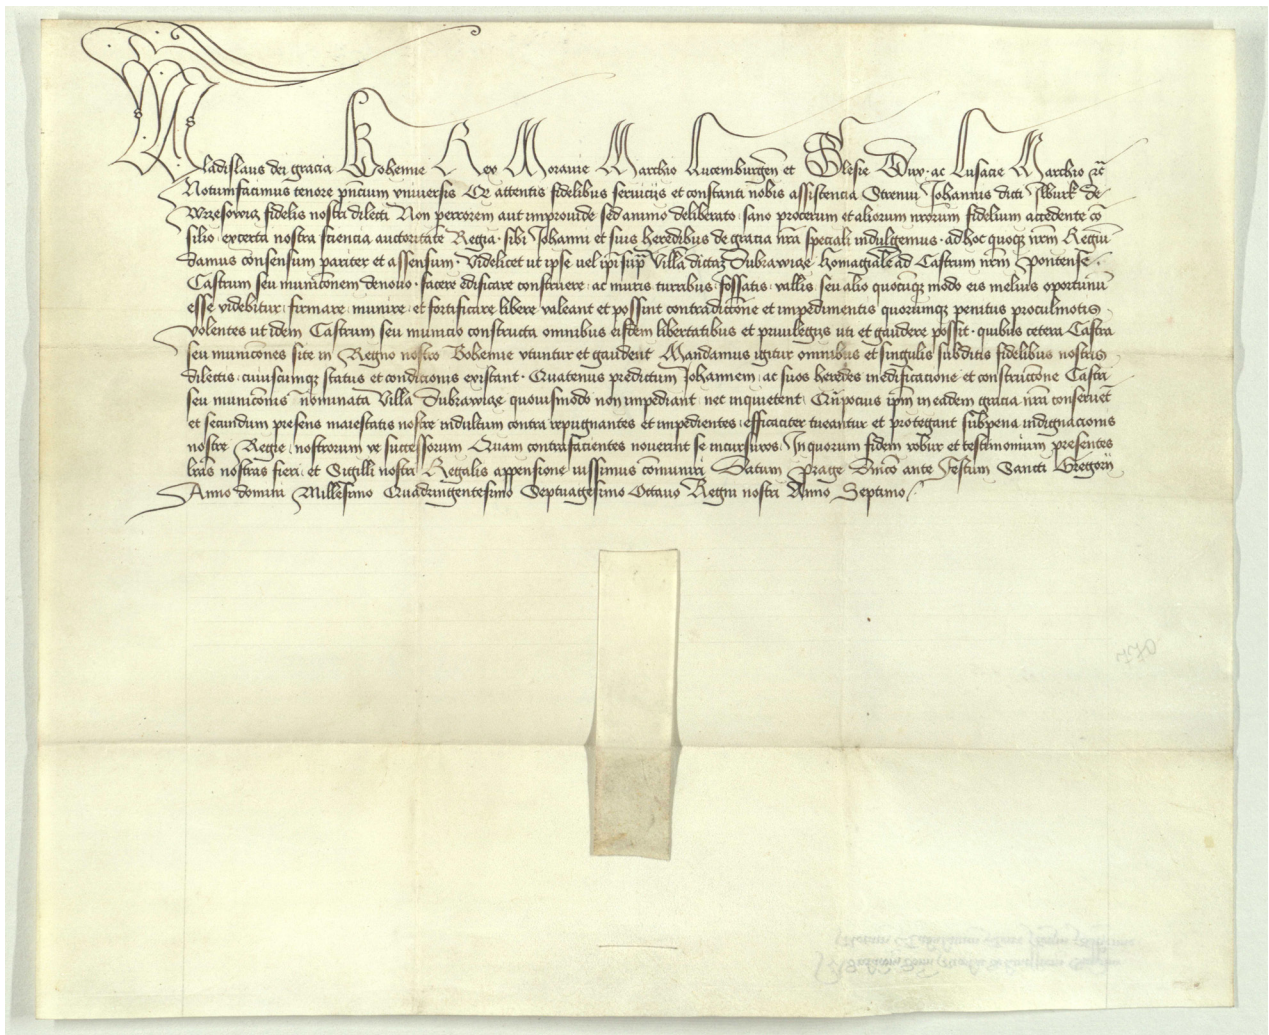 Wladislaus dei gracia Bohemie Rex Moravie Marchio Lucemburgen̄ et Slesie Dux ac Lusacie Marchio ꝛc̄
Notum facimus tenore pn̄cium vniuersis Q attentis fidelibus seruicijs et constanti nobis assistencia Strenui Johannis dicti Ilburk de
Wrzesowicz fidelis nostri dilecti Non per errorem aut improuide sed animo deliberato sano procerum et aliorum nr̄orum fidelium accedente cō
silio ex certa nostra sciencia auctoritate Regia sibi Johanni et suis heredibus de gracia nr̄a speciali indulgemus ad hoc quoqꝫ nr̄m Regiū
damus consensum pariter et assensum Videlicet ut ipse uel ipi sup Villa dicta Dubrawicze homagiale ad Castrum nr̄m Pontense
Castrum seu municōnem denouo facere edificare construere ac muris turribus fossatis vallis seu alio quocūqꝫ modo eis melius oportunū
esse videbitur firmare munire et fortificare libere valeant et possint contradictōne et impedimentis quorumqꝫ penitus proculmotis
volentes ut idem Castrum seu municio constructa omnibus eisdem libertatibus et priuilegijs uti et gaudere possit quibus cetera Castra
seu municōnes site in Regno nostro Bohemie vtuntur et gaudent Mandamus igitur omnibus et singulis subditis fidelibus nostris
dilectis cuiuscumqꝫ status et condicionis existant Quatenus predictum Johannem ac suos heredes in edificacione et construccōne Castri
seu municōnis nominata Villa Dubrawicze quouismodo non impediant nec inquietent Quīpocius ip̄m in eadem gracia nr̄a conseruēt
et secundum presens maiestatis nostre indultum contra repugnantes et impedientes efficaciter tueantur et protegant sub pena indignacionis
nostre Regie nostrorum ve successorum Quam contrafacientes nouerint se incursuros In quorum fidem robur et testimonium presentes
lr̄as nostras fieri et Sigilli nostri Regalis appensione iussimus cōmuniri Datum Prage Dn̄ico ante festum Sancti Gregorij
Anno domini Millesimo Quadringentesimo Septuagesimo Octauo Regni nostri Anno Septimo